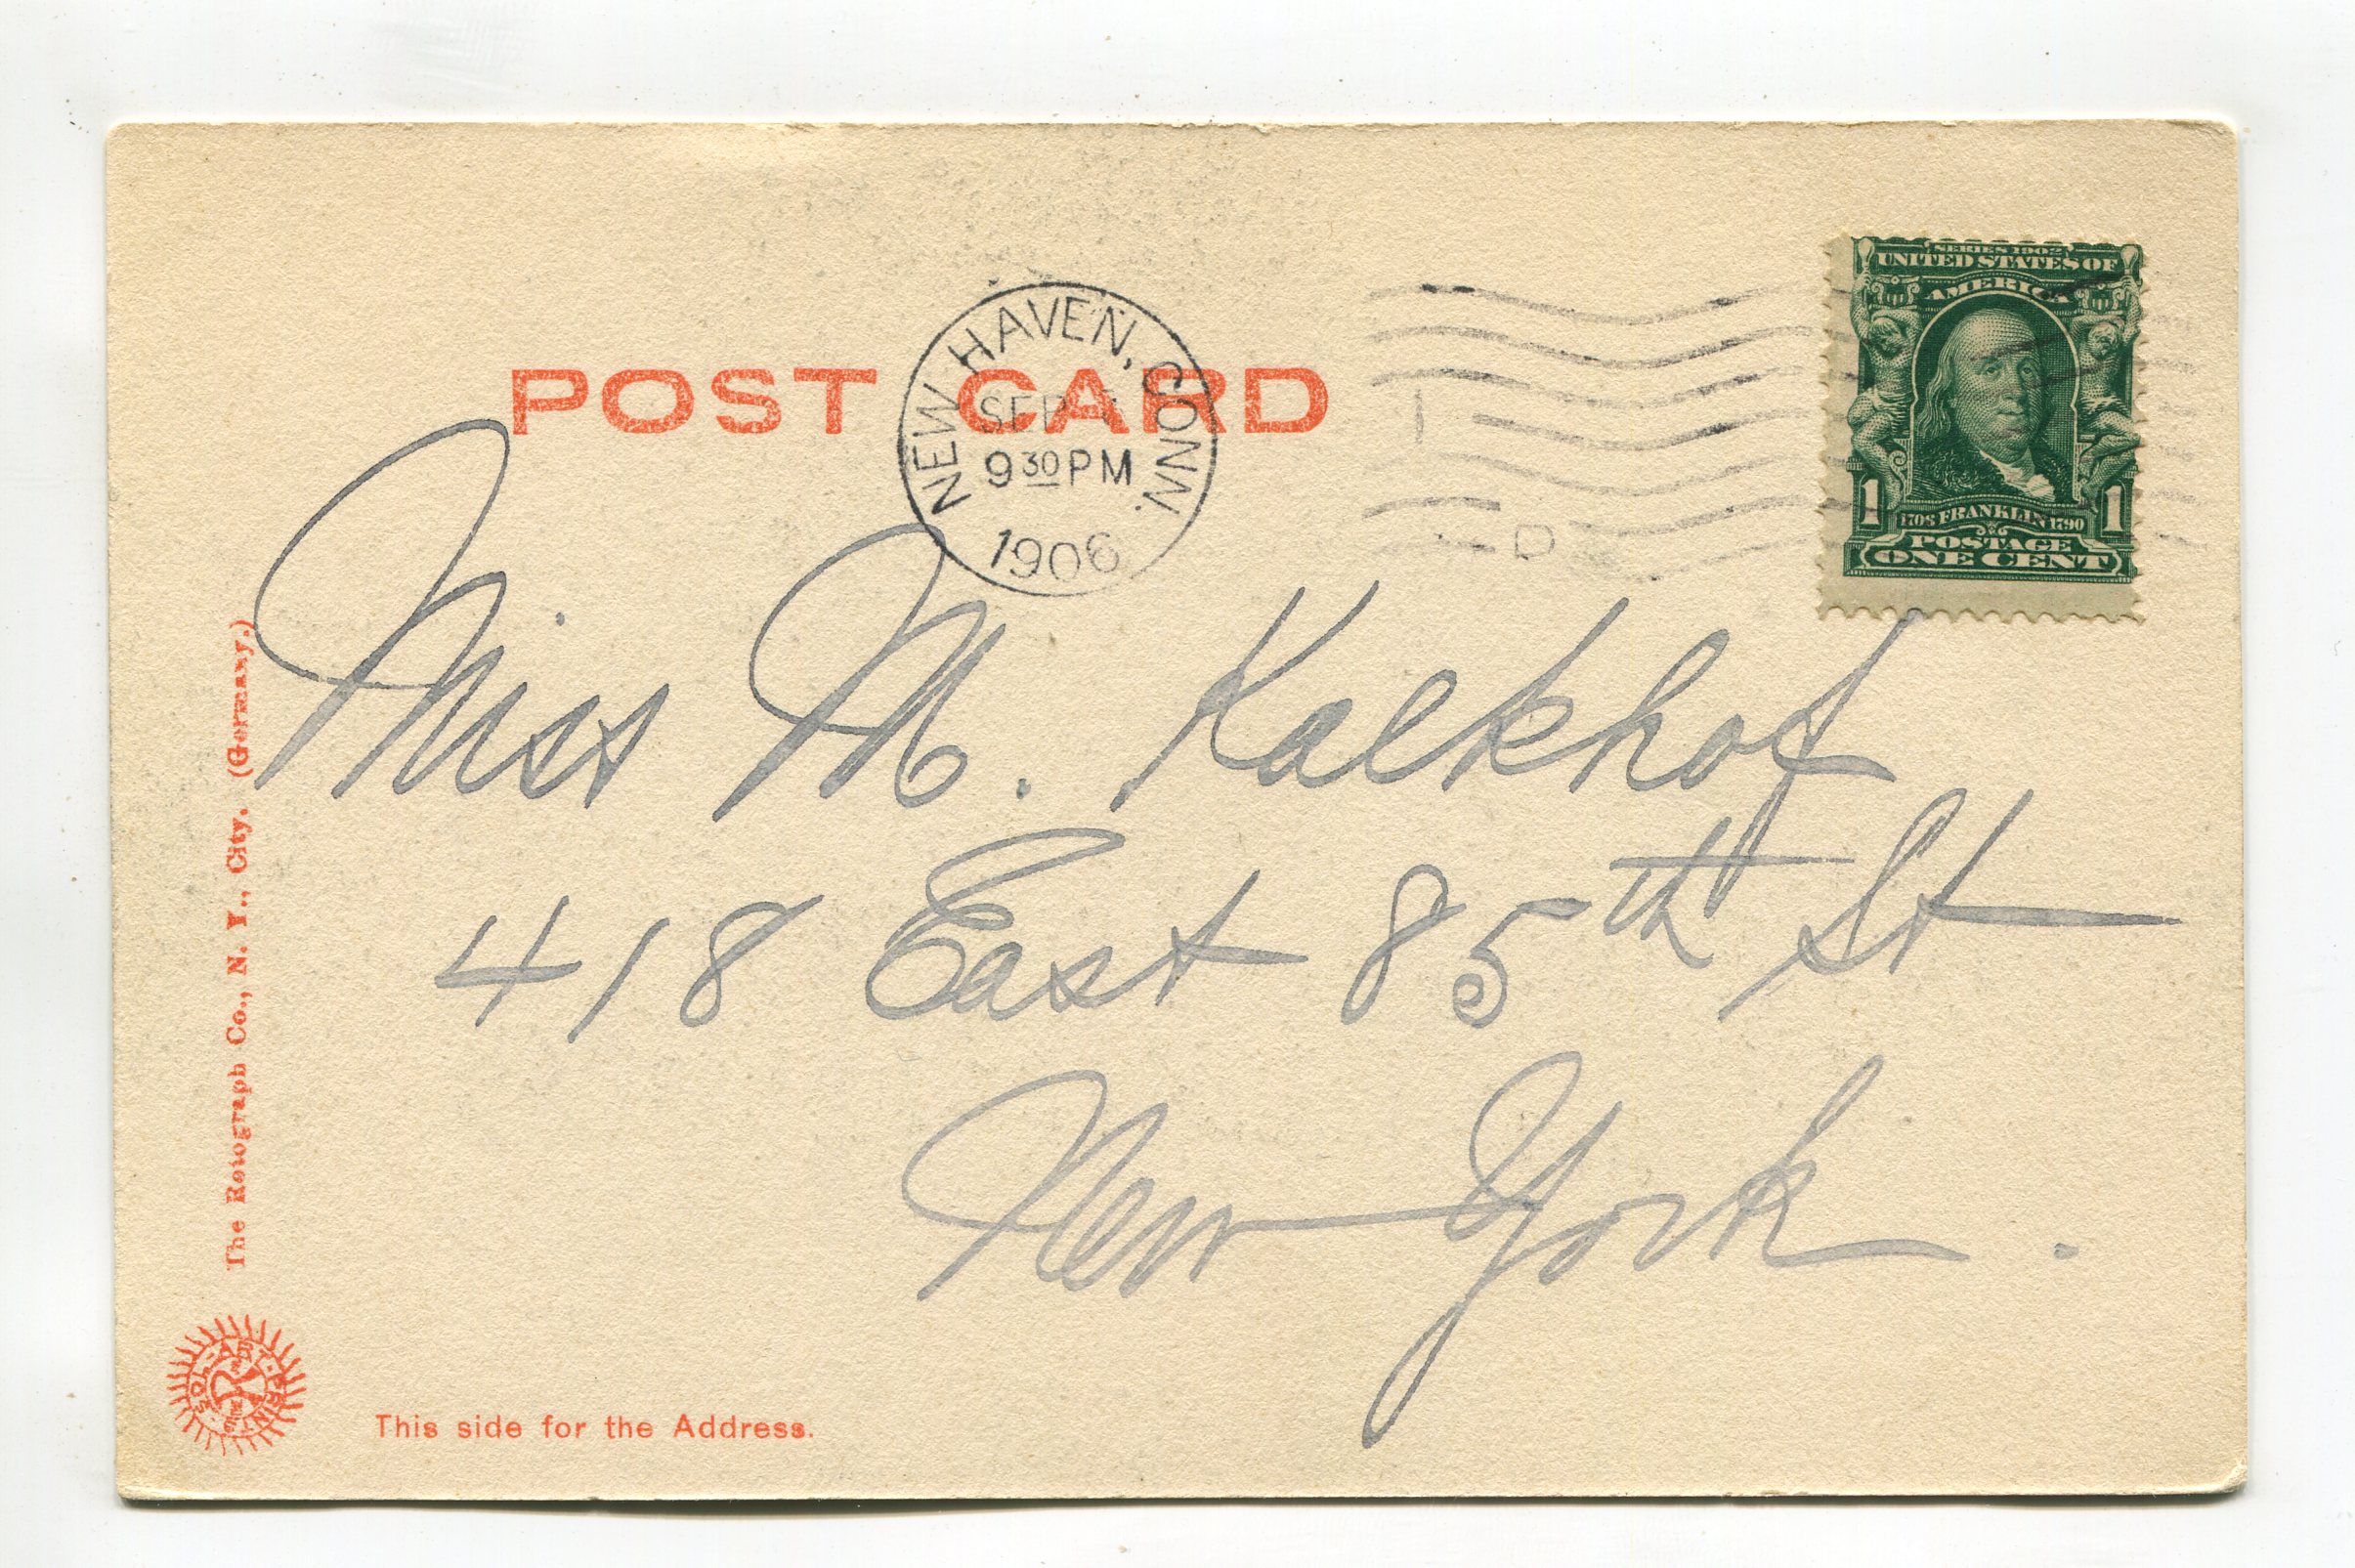 POST CARD
NEW HAVEN, CONN.
SEP
9 30 PM
1906
D
SERIES 1902
UNITED STATES OF
AMERICA
1 1706 FRANKLIN 1790 1
POSTAGE
ONE CENT
Miss M. Kalkhof
418 East 85th St
New York.
The Rotograph Co., N. Y., City. (Germany.)
SOL-ART PRINT
This side for the Address.